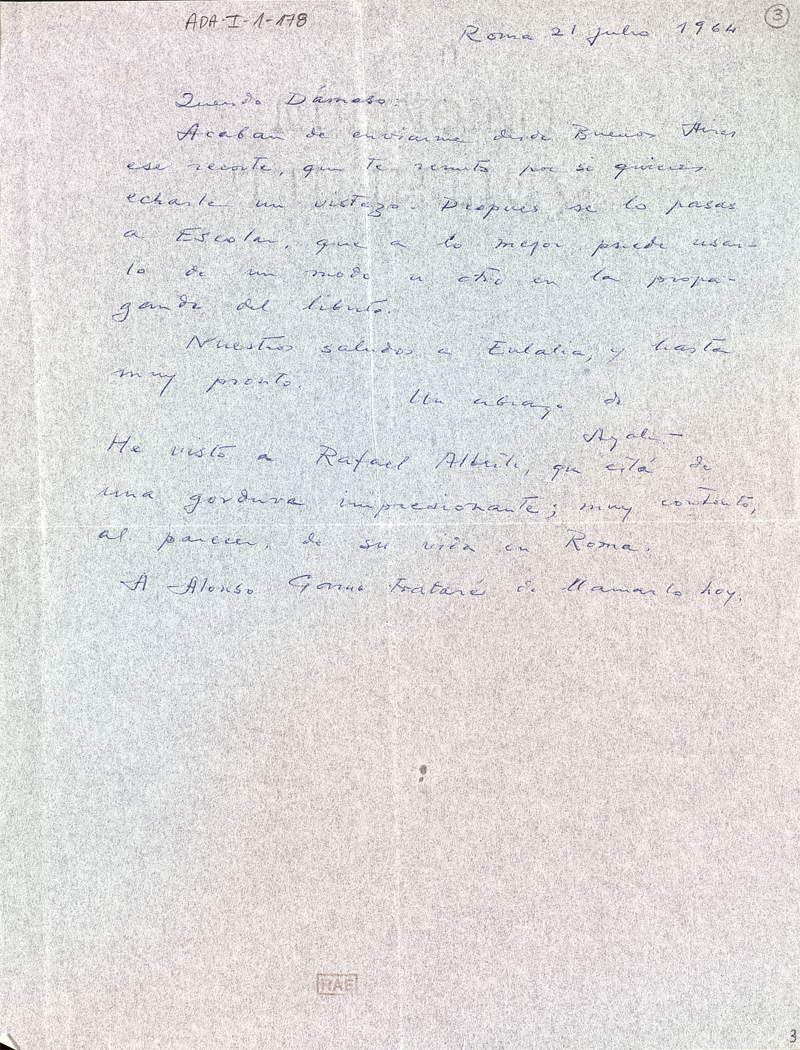 ADA-I-1-178
3
Roma 21 julio 1964
Querido Dámaso:
Acaban de enviarme desde Buenos Aires
ese recorte, que te remito por si quieres
echarle un vistazo. Después se lo pasas
a Escolar, que a lo mejor puede usar-
lo de un modo u otro en la propa-
ganda del librito.
Nuestros saludos a Eulalia, y hasta
muy pronto.
Un abrazo de
Ayala
He visto a Rafael Alberti, que está de
una gordura impresionante; muy contento,
al parecer, de su vida en Roma.
A Alonso trataré de llamarlo hoy.
RAE
3